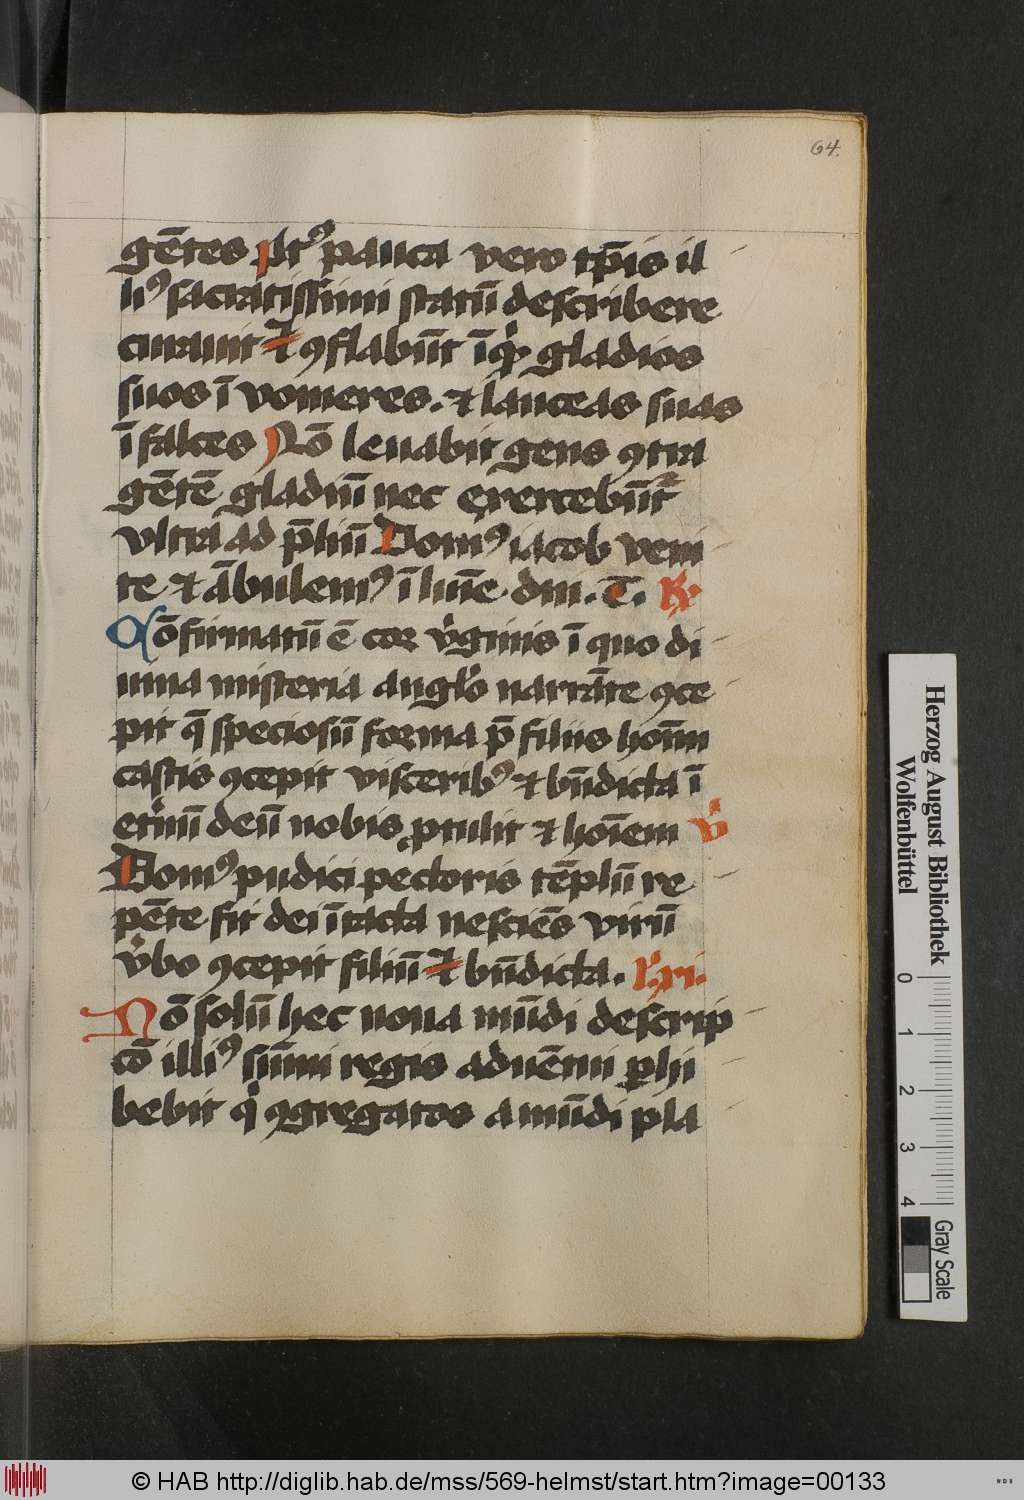 64.
gētes plꝰ pauca vero tp̄is il
liꝰ sacratissimi statū describere
curauit Et ꝯflabūt īqͥ gladios
suos ī vomeres. et lanceas suas
ī falces Nō leuabit gens ꝯtra
gētē gladiū nec exercebūtᷣ
vltra ad p̄liū Domꝰ iacob veni
te et ābulemꝰ ī lūīe dm̄. T̄. R.
Cōfirmatū ē cor vͥginis ī quo di
uina misteria anglo narrāte ꝯce
pit q̄ speciosū forma p̄ filiis hoīm
castis ꝯcepit visceribꝰ et bn̄dicta ī
etͥnū deū nobis ꝓtulit et hoīem vͥ
Domꝰ pudici pectoris tēplū re
pēte fit dei ītacta nesciēs virū
vͥbo ꝯcepit filiū Et bn̄dicta. R. ri.
Nō solū hec noua mūdi descrip
cō illiꝰ sūmi regis aduētui ꝑhi
bebit qͥ ꝯgregatos a mūdi pla
Herzog August Bibliothek
Wolfenbüttel
0 1 2 3 4
Gray Scale
© HAB http://diglib.hab.de/mss/569-helmst/start.htm?image=00133